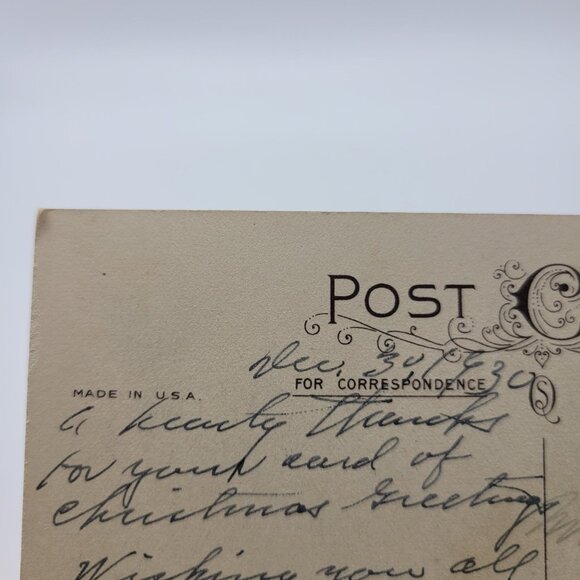 POST C
Dec. 30, 1930
FOR CORRESPONDENCE
MADE IN U.S.A.
a hearty thanks
for your card of
Christmas greetings
Wishing you all